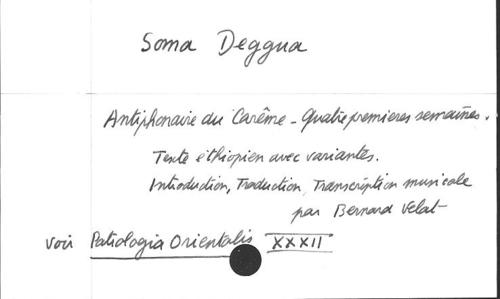 Soma Deggua
Antiphonaire du Carême - Quatre premieres semaines.
Texte éthiopien avec variantes.
Introduction, Traduction, Transcription musicale
par Bernard Velat
voir Patrologia Orientalis XXXII